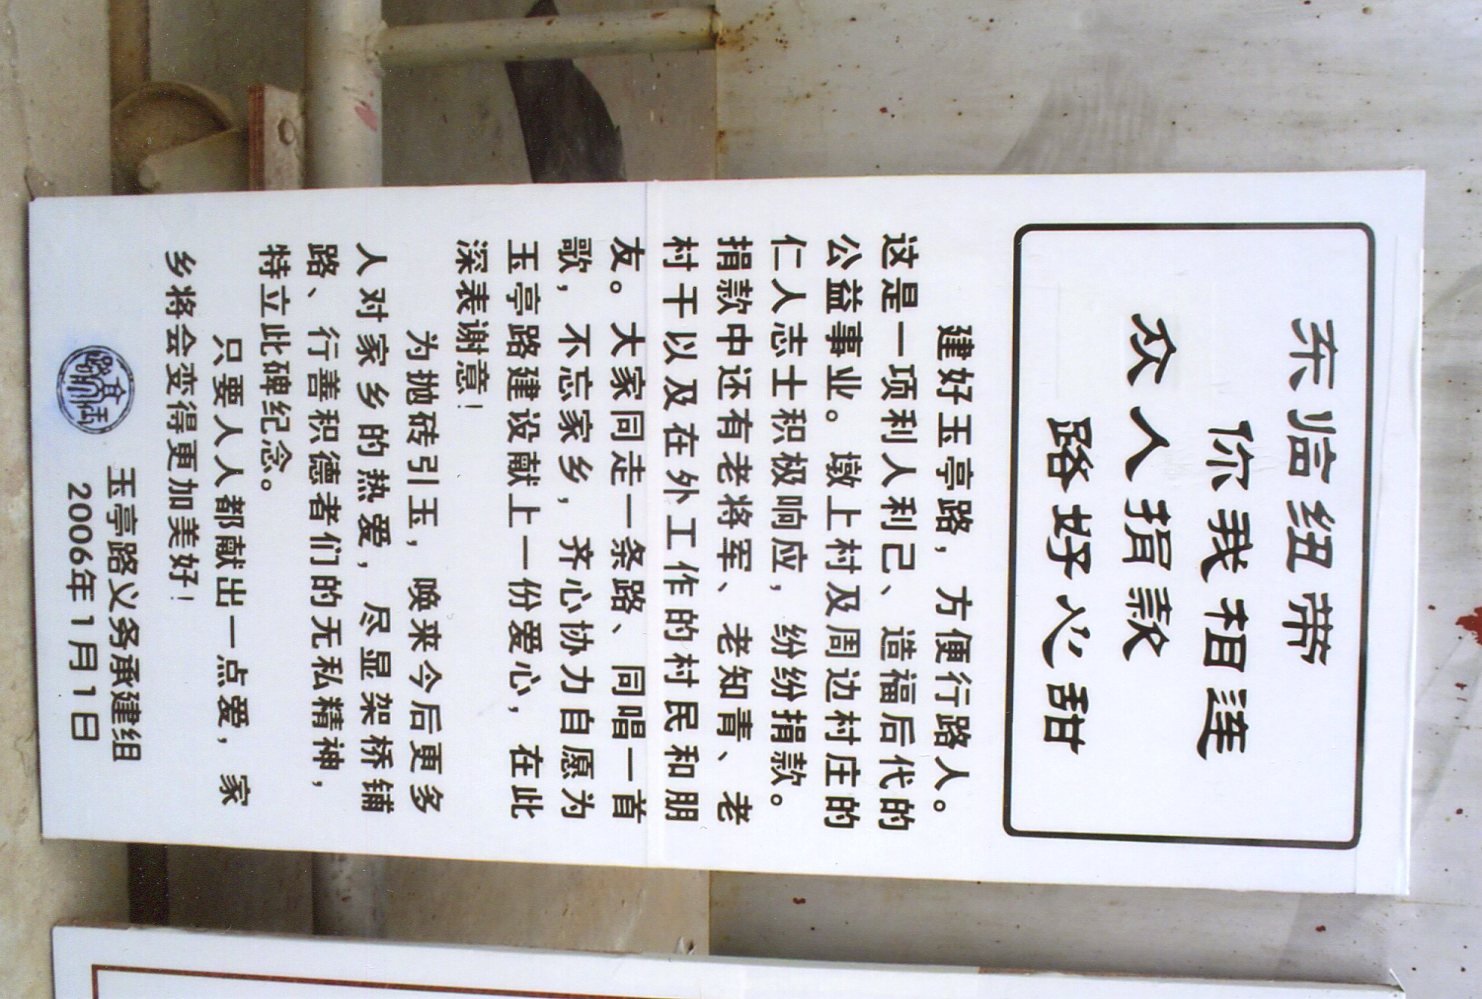 东信纽带
你我相连
众人捐款
路好心甜
建好玉亭路，方便行路人。
这是一项利人利己、造福后代的
公益事业。墩上村及周边村庄的
仁人志士积极响应，纷纷捐款。
捐款中还有老将军、老知青、老
村干以及在外工作的村民和朋
友。大家同走一条路、同唱一首
歌，不忘家乡，齐心协力自愿为
玉亭路建设献上一份爱心，在此
深表谢意！
为抛砖引玉，唤来今后更多
人对家乡的热爱，尽显架桥铺
路、行善积德者们的无私精神，
特立此碑纪念。
只要人人都献出一点爱，家
乡将会变得更加美好！
玉亭路义务承建组
2006年1月1日